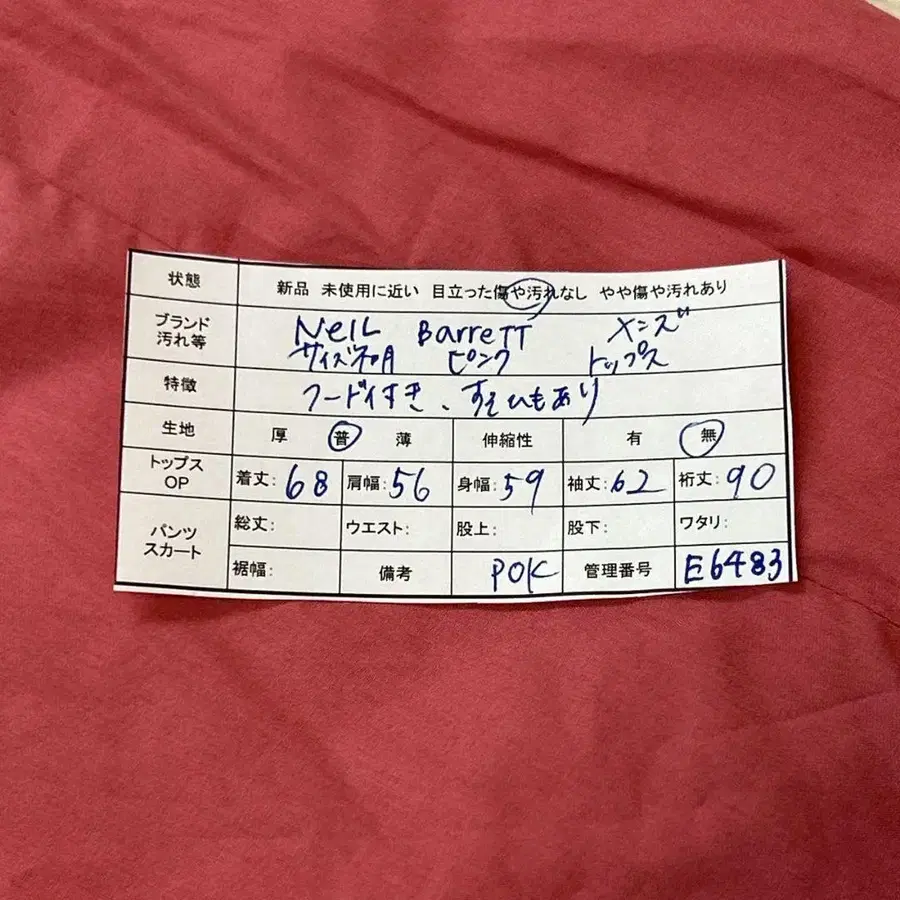 状態 新品 未使用に近い 目立った傷や汚れなし やや傷や汚れあり
ブランド 汚れ等 NeIL BarreTT メンズ
サイズ不明 ピンク トップス
特徴 フード付き、すそひもあり
生地 厚 普 薄 伸縮性 有 無
トップス OP 着丈: 68 肩幅: 56 身幅: 59 袖丈: 62 裄丈: 90
パンツ スカート 総丈: ウエスト: 股上: 股下: ワタリ:
裾幅: 備考 POK 管理番号 E6483